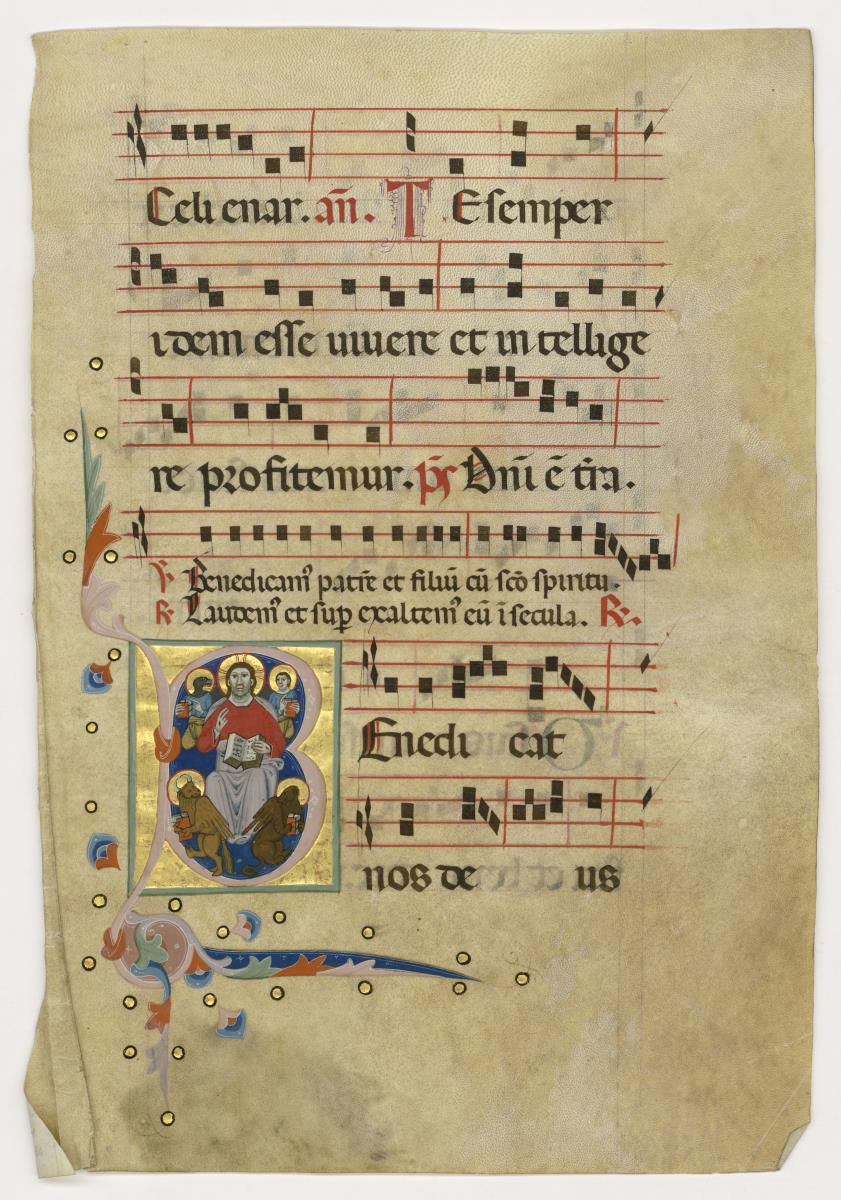 Celi enar. an̄. T E semper
idem esse uiuere et intellige
re profitemur. p̄s Dn̄i ē tr̄a.
℣ Benedicam᾽ patrē et filiū cū sc̄o spiritu.
℟ Laudem᾽ et sup̱ exaltem᾽ eū ī secula. ℟.
BEnedi cat
nos de us